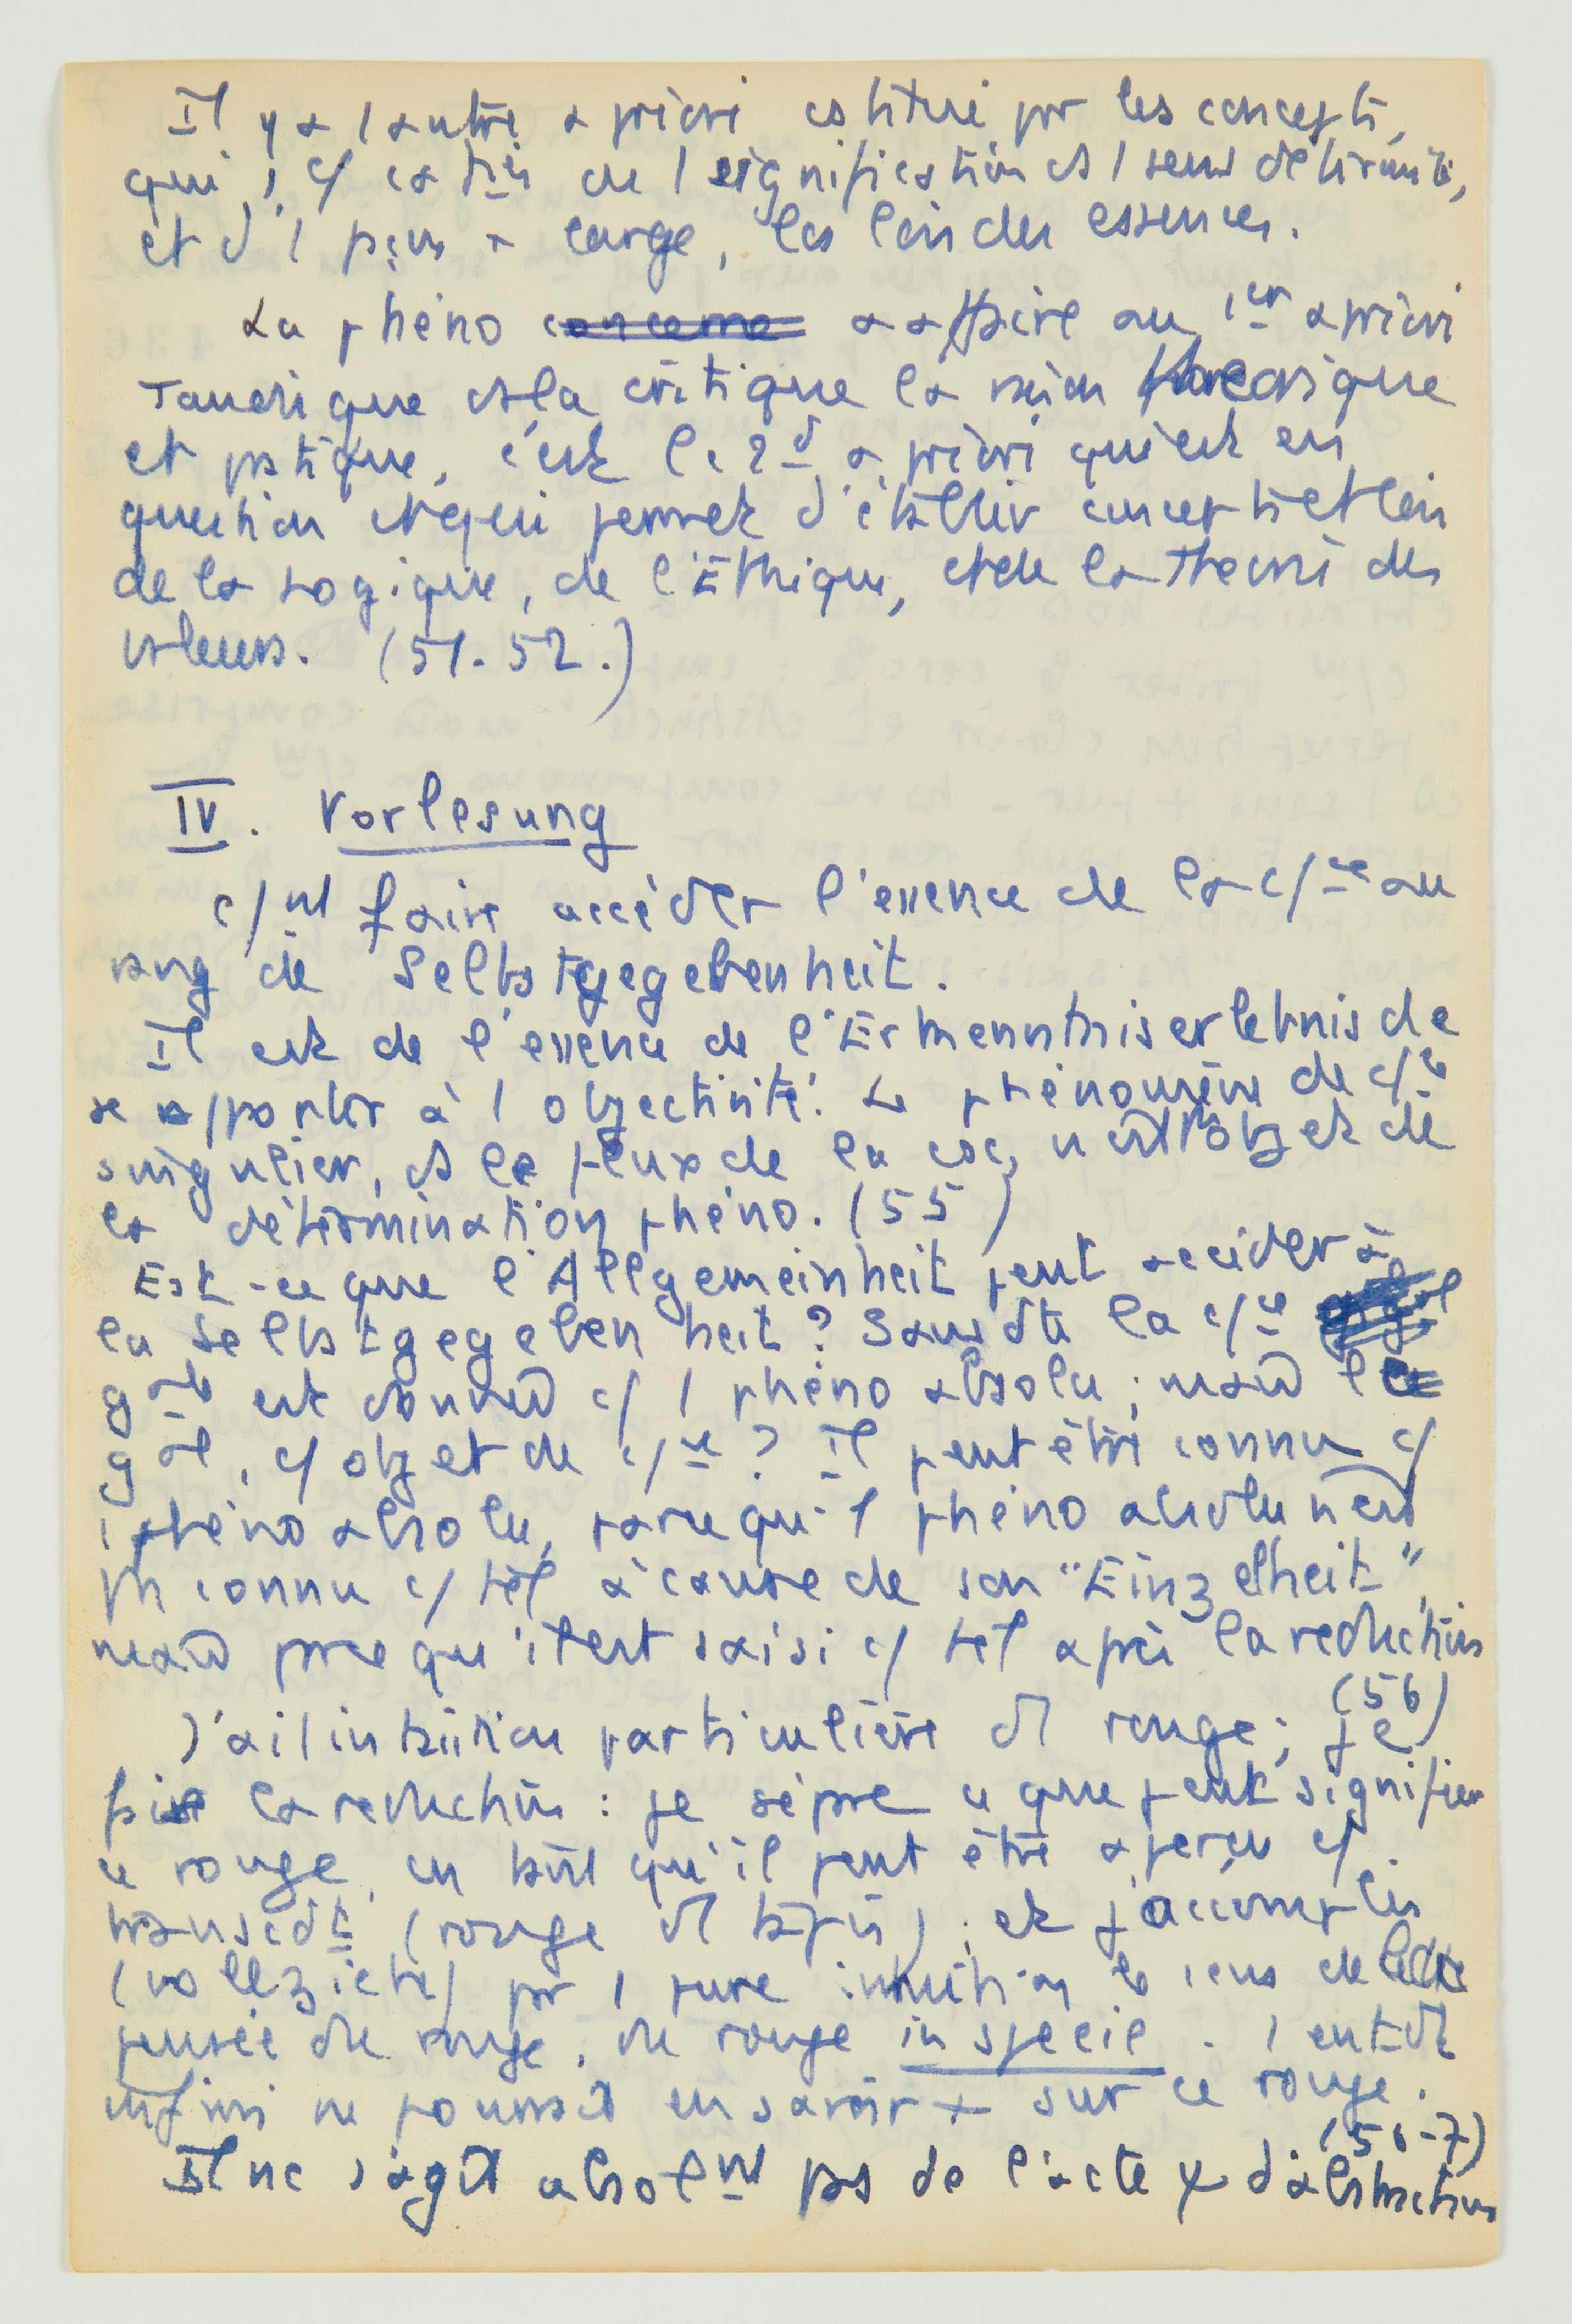 Il y a 1 autre a priori cstitué par les concepts,
qui, c/ catg de 1 signification et 1 sens déterminés,
et d'1 façon + large, les lois des essences.
La phéno a affaire au 1er a priori
Tandis que ds la critique la raison théorique
et pratique, c'est le 2d a priori qui est en
question et qui permet d'établir concepts et lois
de la Logique, de l'Éthique, et de la Théorie des
valeurs. (51-52.)
IV. Vorlesung
c/nt faire accéder l'essence de la c/ce au
rang de Selbstgegebenheit.
Il est de l'essence de l'Erkenntniserlebnis de
se rapporter à 1 objectivité. Le phénomène de c/ce
singulier, ds le flux de la csc, n'est l'objet de
la détermination phéno. (55)
Est-ce que l'Allgemeinheit peut accéder à
la Selbstgegebenheit ? Sans dte la c/ce
gale est donnée c/ 1 phéno absolu ; mais le
gal, c/ objet de c/ce ? Il peut être connu c/
1 phéno absolu, parce qu'1 phéno absolu n'est
pas connu c/ tel à cause de son "Einzelheit",
mais parce qu'il est saisi c/ tel après la réduction
(56)
J'ai 1 intuition particulière du rouge ; je
fais la réduction : je sépare ce que peut signifier
ce rouge, en tant qu'il peut être aperçu c/
transcdt (rouge du tapis) ; et j'accomplis
(vollziehe) par 1 pure intuition le sens de
pensée du rouge, du rouge in specie. 1 entdt
infini ne pourrait en savoir + sur ce rouge.
(56-7)
Il ne s'agit absolnt pas de l'acte ψ d'abstraction